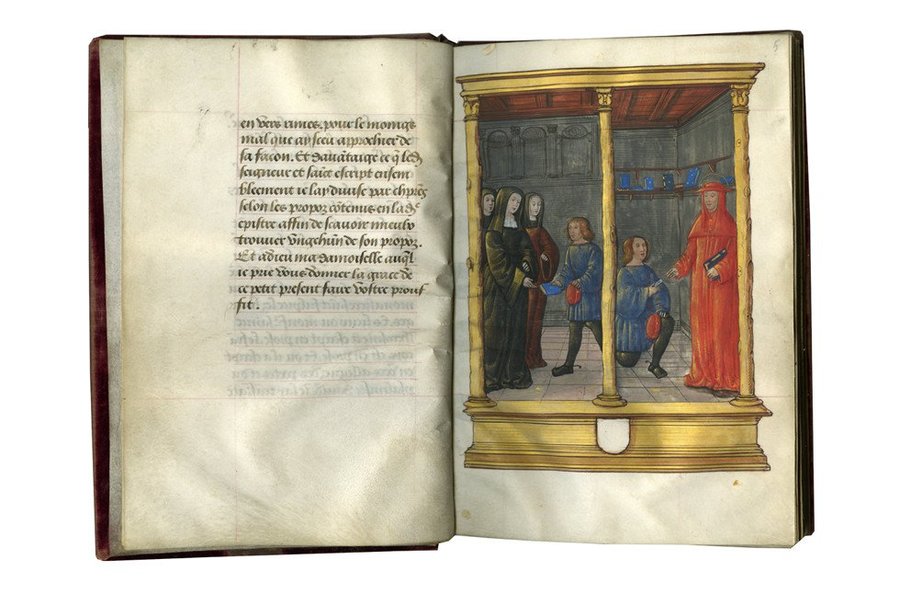 en vers rimes pour le moings
mal que ay sceu approchier de
sa facon. Et davātaige ce q̄ led̄
seigneur et saīct escript ensem
blement ie lay divise par chp̄rēs
selon les propoz cōtenus en lad̄
epistre affin de scavoir mieulx
trouver ungchūn de son propoz.
Et adieu ma damoiselle auq̄l
ie prie vous donner la grace de
ce petit present faire vostre prouf
fit.
5